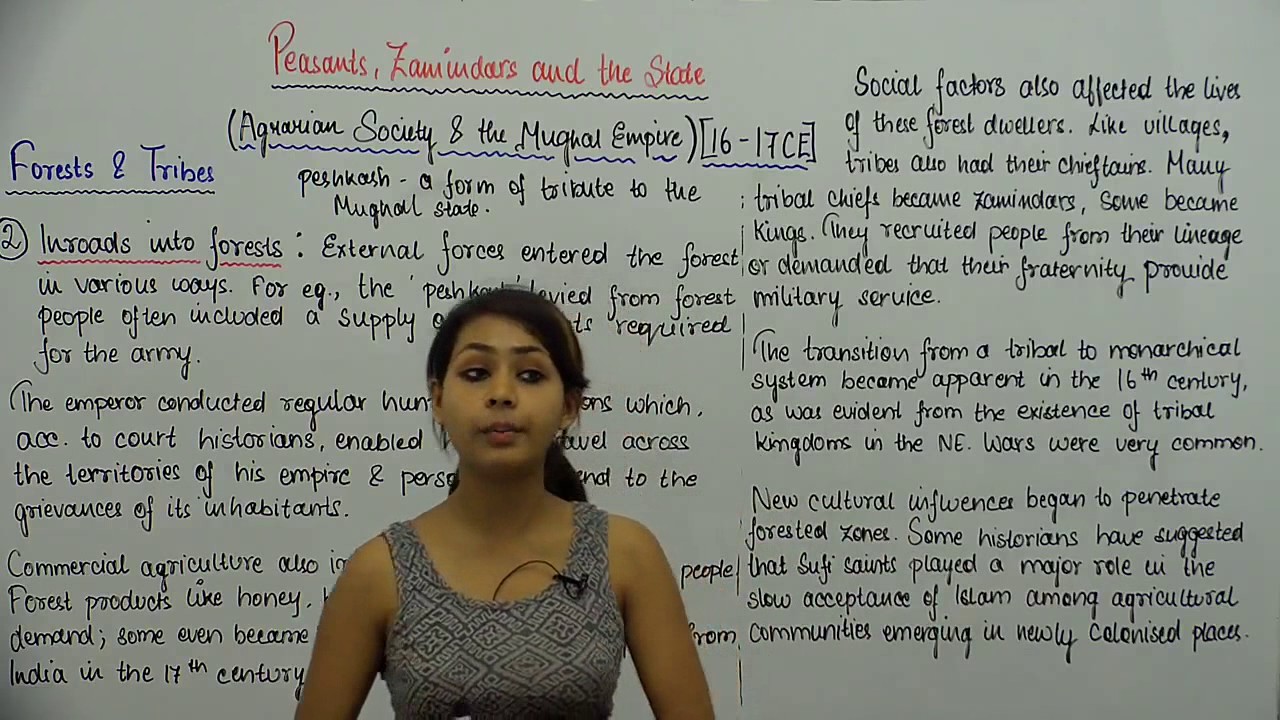 Peasants, Zamindars and the State
(Agrarian Society & the Mughal Empire) [16-17CE]
Forests & Tribes
peshkash - a form of tribute to the
Mughal state.
② Inroads into forests : External forces entered the forest
in various ways. For eg., the 'peshkash' levied from forest
people often included a supply required
for the army.
The emperor conducted regular which,
acc. to court historians, enabled across
the territories of his empire & to the
grievances of its inhabitants.
Commercial agriculture also people
Forest products like honey,
demand; some even became from
India in the 17th century
Social factors also affected the lives
of these forest dwellers. Like villages,
tribes also had their chieftains. Many
tribal chiefs became zamindars, some became
Kings. They recruited people from their lineage
or demanded that their fraternity provide
military service.
The transition from a tribal to monarchical
system became apparent in the 16th century,
as was evident from the existence of tribal
kingdoms in the NE. Wars were very common.
New cultural influences began to penetrate
forested zones. Some historians have suggested
that Sufi saints played a major role in the
slow acceptance of Islam among agricultural
communities emerging in newly colonised places.